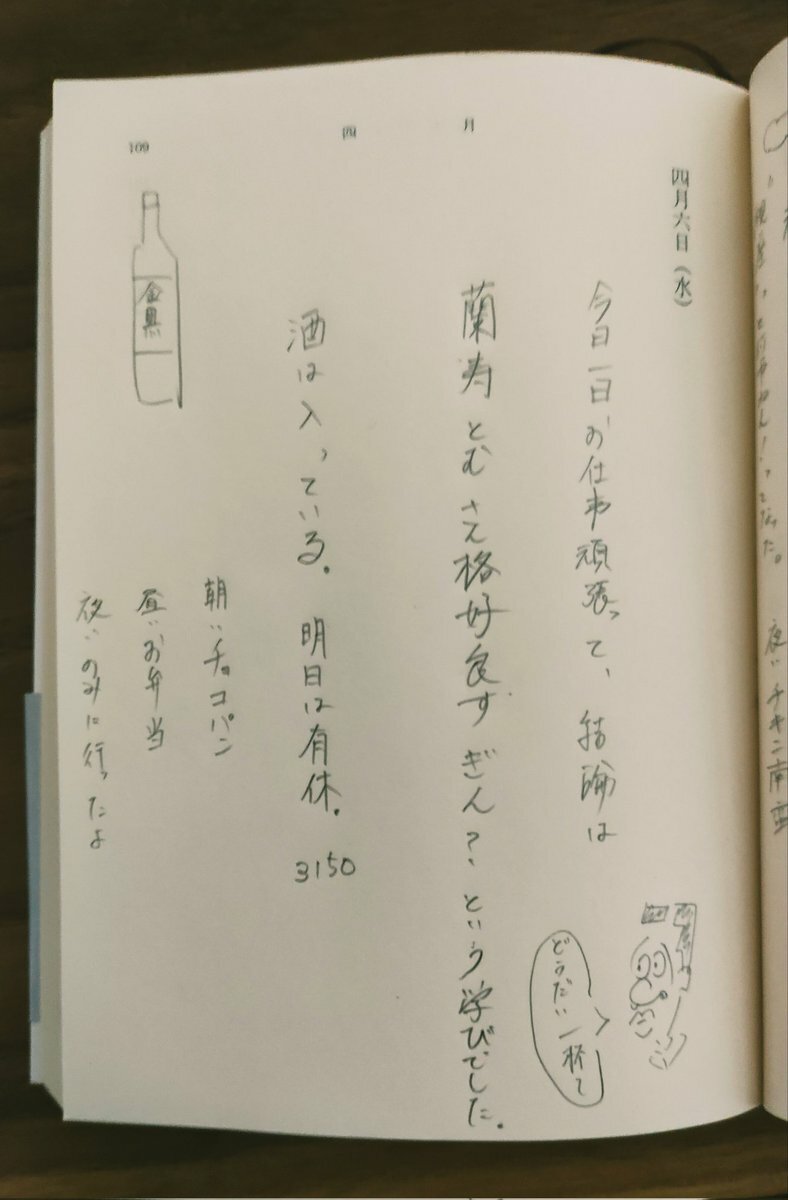 四月六日(水)
今日一日お仕事頑張って、結論は
蘭寿とむさん格好良すぎん?という学びでした。
酒は入っている。明日は有休。
3150
朝:チョコパン
昼:お弁当
夜:のみに行ったよ
金黒
どうだい一杯
四月
109
夜:チキン南蛮